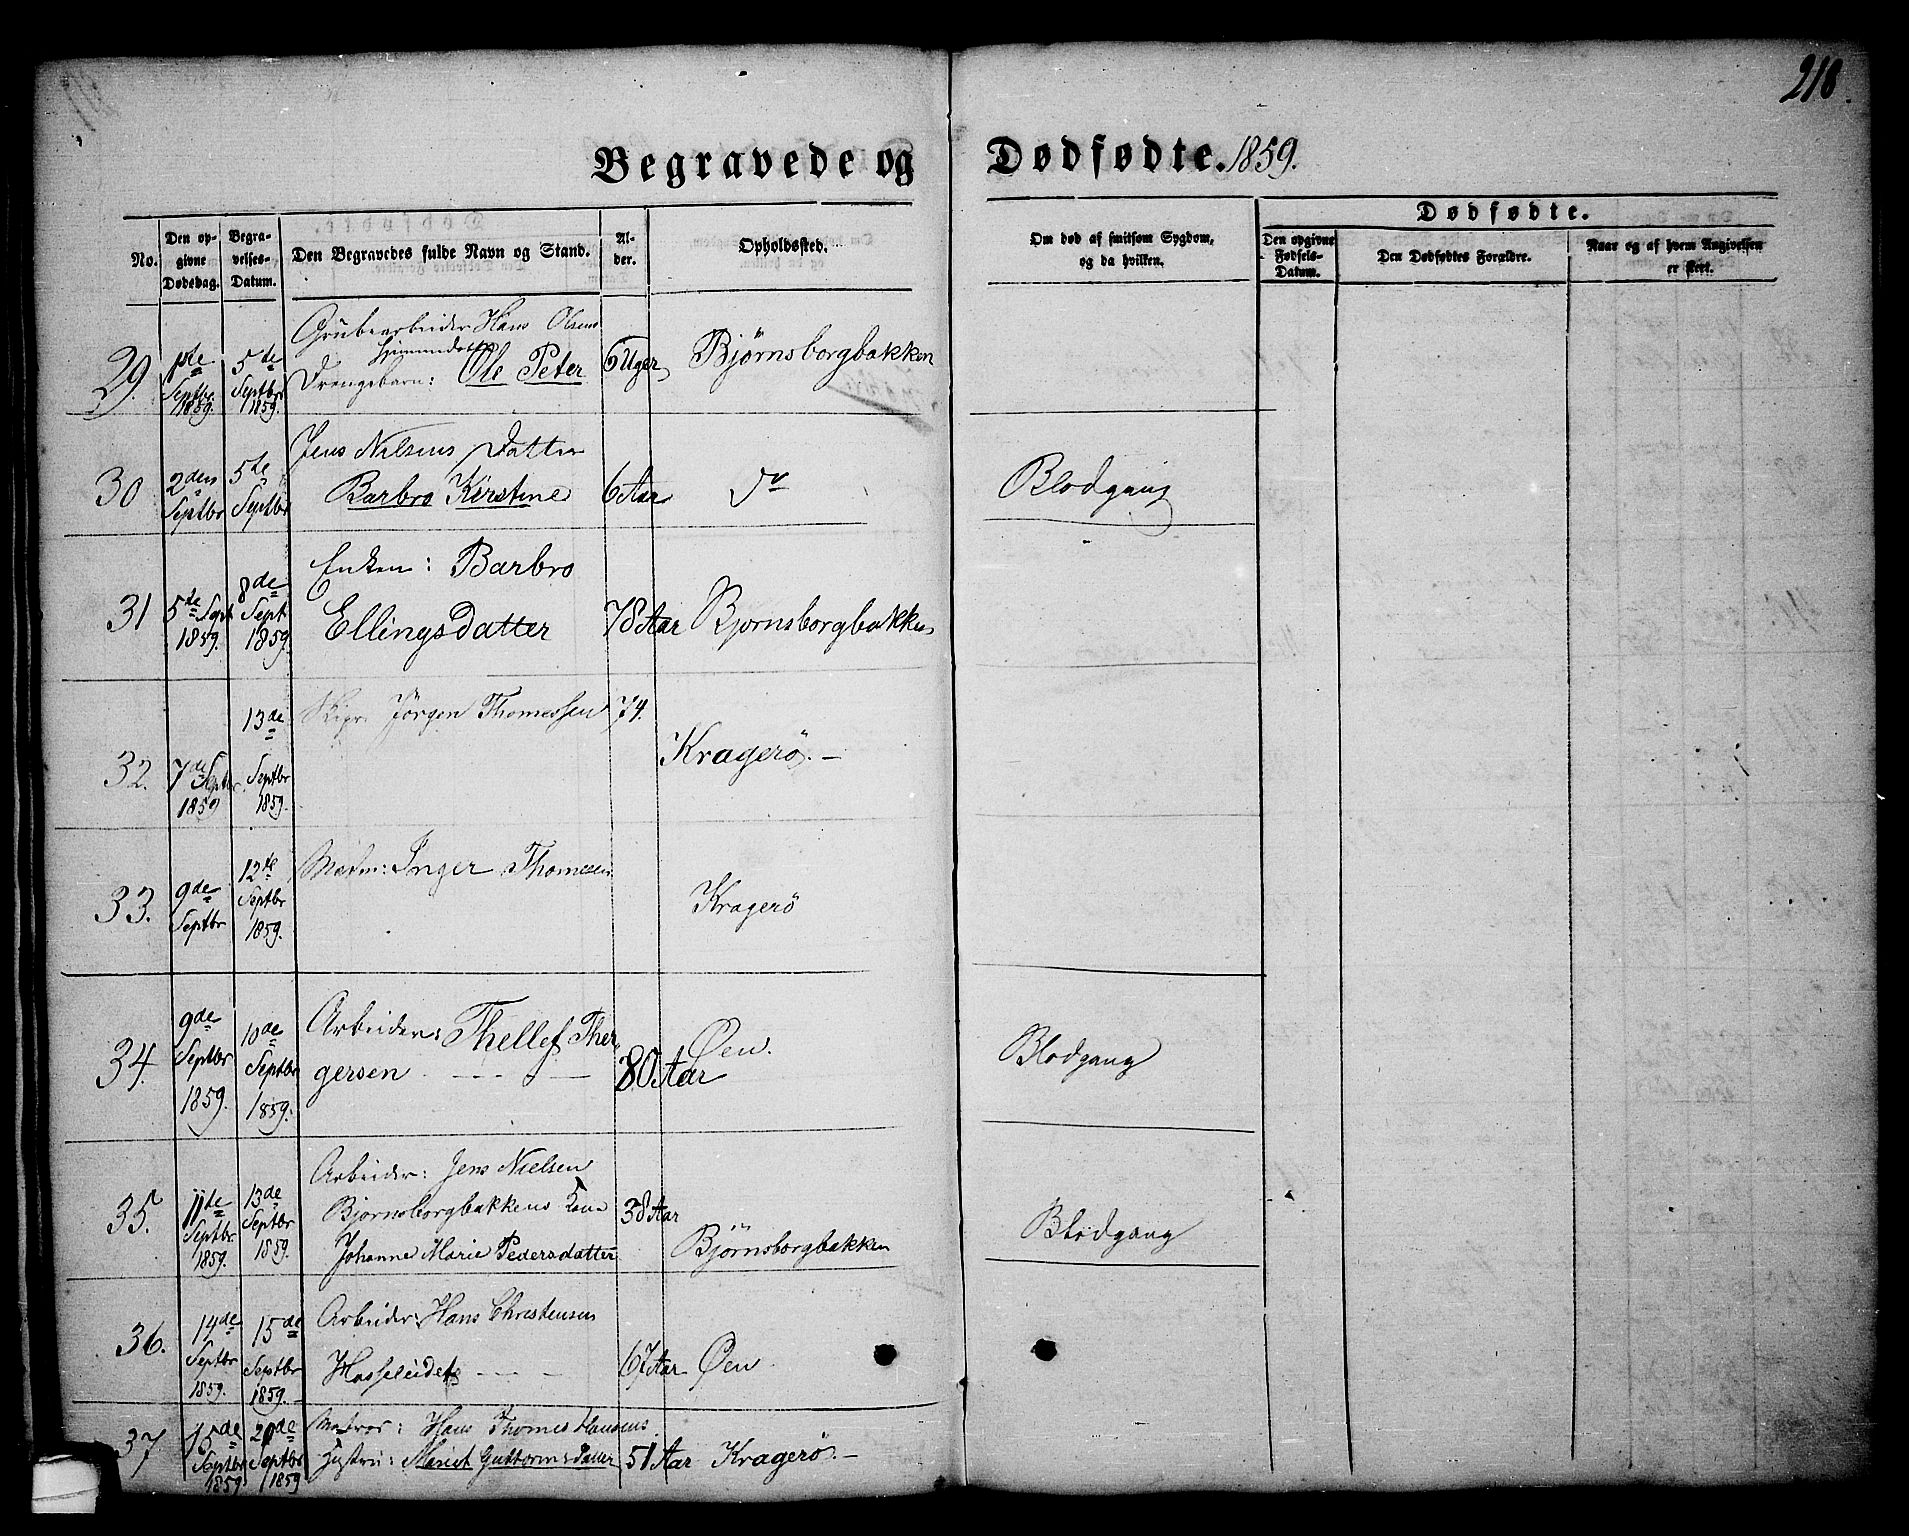 218.
Begravede og Dødfødte. 1859.
No.
Den opgivne Dødsdag.
Begravelses-Datum.
Den Begravedes fulde Navn og Stand.
Alder.
Opholdssted.
Om død af smitsom Sygdom, og da hvilken.
Dødfødte.
Den opgivne Fødsels-Datum.
Den Dødfødtes Forældre.
Naar og af hvem Angivelsen er skeet.
29. 1ste Septbr. 1859. 5te Septbr 1859.
Grubearbeider Hans Olsens
Drengebarn: Ole Peter 6 Uger Bjørnsborgbakken
30 2den Septbr 5te Septbr
Jens Nilsens Datter
Barbro Kirstine 6 Aar do Blodgang
31 5te Sept. 1859. 8de Sept 1859.
Enken: Barbro
Ellingsdatter 78 Aar Bjornsborgbakken
32. 7de Septbr. 1859 13de Septbr 1859.
Skipr. Jörgen Thomessen 74. Kragerö. —
33. 9de Septbr 12te Septbr 1859.
Madm: Inger Thomesen Kragerö
34. 9de Septbr 1859. 10de Septbr 1859.
Arbeider: Thellef Ther-
gersen - - - 80 Aar Øen. Blodgang
35. 11te Septbr. 1859. 13de Septbr 1859.
Arbeider: Jens Nielsen
Bjornsborgbakkens Kone 38 Aar
Johanne Marie Pedersdatter Bjørnsborgbakken Blodgang
36. 14de Septbr 1859. 15de Septbr 1859.
Arbeider: Hans Christensen
- - - 67 Aar Øen.
37 15de Septbr 1859 20de Septbr 1859
Matros: Hans Thomes Hansens
Hustru: Guttormsdatter 51 Aar Kragerö. —